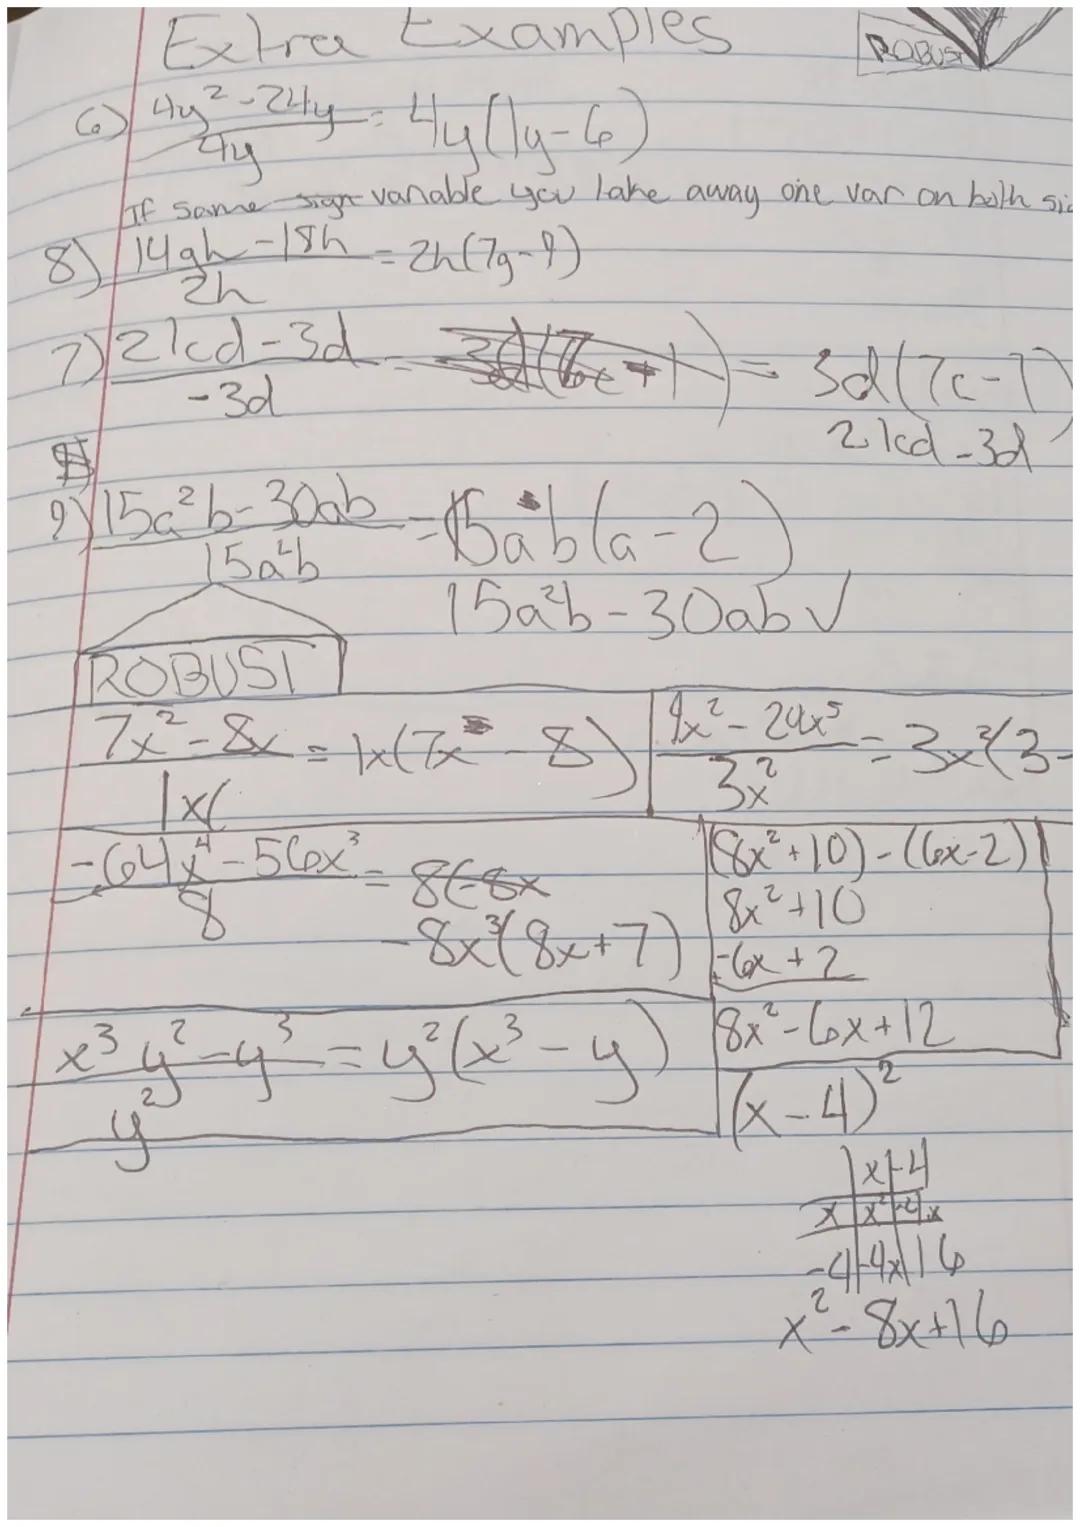 Extra Examples
ROBUST
6) 4y² - 24y / 4y = 4y(1y-6)
If same variable you take away one var on both
8) 14gh - 18h / 2h = 2h(7g-9)
7) 21cd - 3d / -3d = 3d(7c-1)
21cd - 3d
9) 15a²b - 30ab / 15a²b = 15ab(a-2)
15a²b - 30ab ✓
ROBUST
7x² - 8x / 1x( = 1x(7x - 8)
9x² - x⁵ / 3x² = 3x²(3-
-64x⁴ - 56x³ / 8 = 8(-8x
-8x³(8x+7)
(8x²+10) - (6x-2)
8x²+10
-6x+2
8x²-6x+12
x³y² - y³ / y² = y²(x³ - y)
(x-4)²
x -4
x x² -4x
-4 -4x 16
x²-8x+16